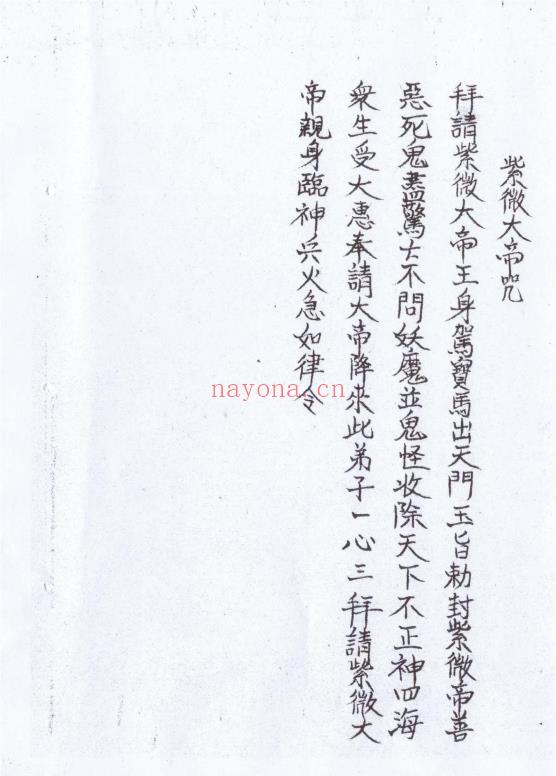 紫微大帝咒
拜請紫微大帝王身駕寶馬出天門玉旨勅封紫微帝善
惡死鬼盡驚亡不問妖魔並鬼怪收除天下不正神四海
衆生受大惠奉請大帝降來此弟子一心三拜請紫微大
帝親身臨神兵火急如律令
nayona.cn